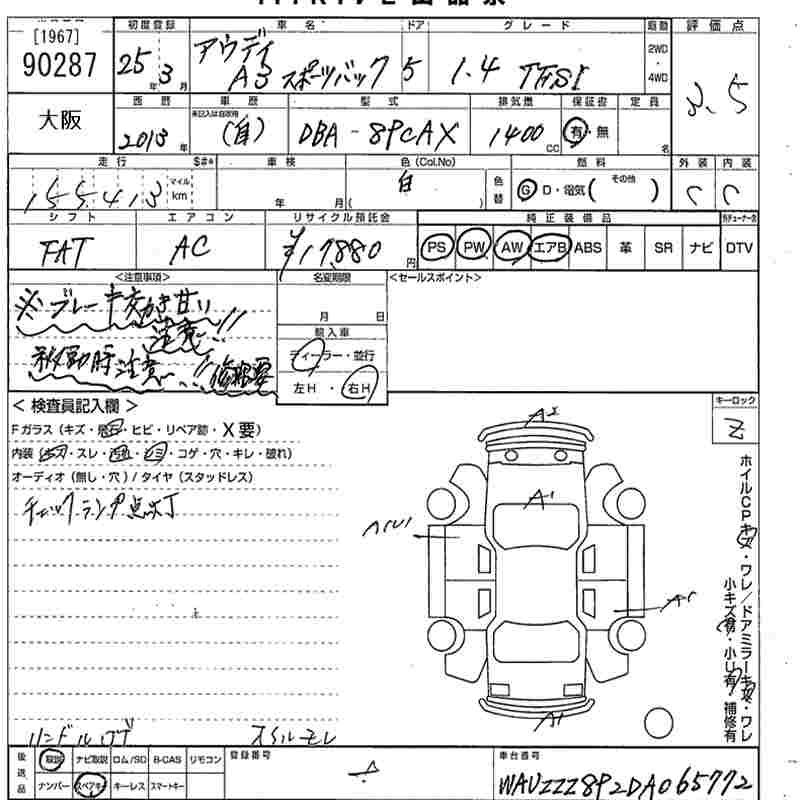 [1967]
90287
大阪
初度登録 車名 ドア グレード 駆動 評価点
25年3月 アウディ A3 スポーツバック 5 1.4 TFSI 2WD・4WD 3.5
西暦 車歴 型式 排気量 保証書 定員
2013年 未記入は自家用 (自) DBA-8PCAX 1400cc 有・無 名
走行 $#* 車検 色(Col.No) 色替 燃料 外装 内装
155413 マイル km 年 月 白 ( ) G・D・電気( その他 ) C C
シフト エアコン リサイクル預託金 純正装備品
FAT AC ¥17,880円 PS PW AW エアB ABS 革 SR ナビ DTV
<注意事項> 名変期限 <セールスポイント>
※ブレーキ効き甘い
注意!!
移動時注意!!
月 日
輸入車
ディーラー・並行
左H・右H
<検査員記入欄> キーロック
Fガラス(キズ・飛石・ヒビ・リペア跡・X要)
内装 ・スレ・ ・ ・コゲ・穴・キレ・破れ)
オーディオ(無し・穴)/タイヤ(スタッドレス)
チェックランプ点灯
A1
A1
A1
ホイルCPキズ・ワレ/ドアミラーキズ・ワレ
小キズ有・小U有・補修有
後送品 取説 ナビ取説 ロム/SD B-CAS リモコン
ナンバー スペアキー キーレス スマートキー
登録番号
車台番号
WAUZZZ8P2DA065772